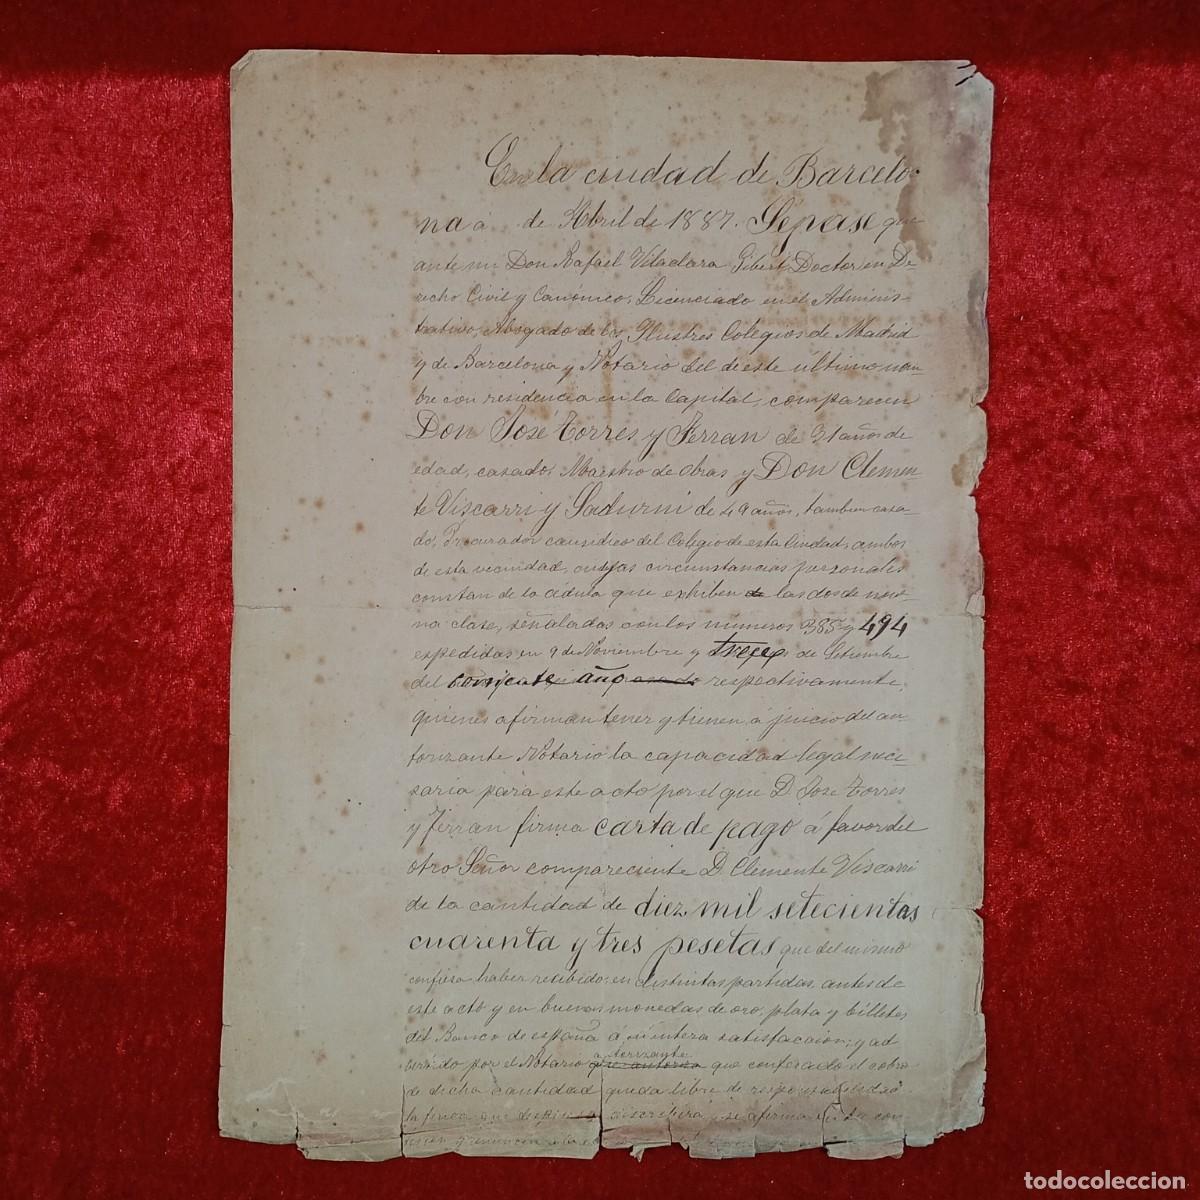 En la ciudad de Barcelo-
na á de Abril de 1887. Sépase que
ante mi Don Rafael Viladara Gibert, Doctor en De-
recho Civil y Canónico, Licenciado en el Adminis-
trativo, Abogado de los Ilustres Colegios de Madrid
y de Barcelona y Notario del de este último nom-
bre con residencia en la Capital, comparecen
Don José Torres y Ferran de 31 años de
edad, casado, Maestro de Obras y Don Clemen-
te Viscarri y Sadurni de 49 años, tambien casa-
do, Procurador causidico del Colegio de esta Ciudad, ambos
de esta vecindad, cuyas circunstancias personales
constan de la cédula que exhiben de las dos de nove-
na clase, señaladas con los números 385 y 494
expedidas en 9 de Noviembre y trece de Setiembre
del corriente año respectivamente,
quienes afirman tener y tienen, á juicio del au-
torizante Notario la capacidad legal nece-
saria para este acto por el que D. José Torres
y Ferran firma carta de pago á favor del
otro Señor compareciente D. Clemente Viscarri
de la cantidad de diez mil setecientas
cuarenta y tres pesetas que del mismo
confiesa haber recibido, en distintas partidas, antes de
este acto y en buenas monedas de oro, plata y billetes
del Banco de españa á su entera satisfaccion; y ad-
vertido por el Notario autorizante que autoriza que confesado el cobro
de dicha cantidad queda libre de responsabilidad
la finca que despues describirá y se afirma esta con-